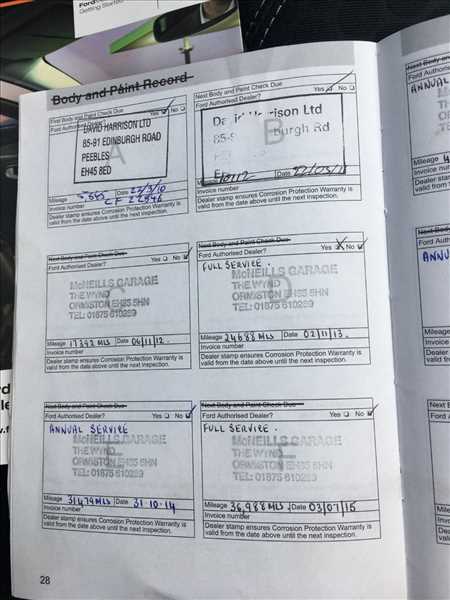 Ford
Getting Started
Body and Paint Record
First Body and Paint Check Due
Ford Authorised Dealer? Yes No
A
DAVID HARRISON LTD
85-91 EDINBURGH ROAD
PEEBLES
EH45 8ED
Mileage 5,555 Date 22/3/10
Invoice number CF 22946
Dealer stamp ensures Corrosion Protection Warranty is
valid from the date above until the next inspection.
Next Body and Paint Check Due
Ford Authorised Dealer? Yes No
B
Harrison Ltd
burgh Rd
Mileage Date
Invoice number
Dealer stamp ensures Corrosion Protection Warranty is
valid from the date above until the next inspection.
Next Body and Paint Check Due
Ford Authorised Dealer? Yes No
C
McNEILLS GARAGE
THE WYND
ORMISTON EH35 5HN
TEL: 01875 610289
Mileage 17392 MLS Date 06/11/12.
Invoice number
Dealer stamp ensures Corrosion Protection Warranty is
valid from the date above until the next inspection.
Next Body and Paint Check Due
Ford Authorised Dealer? Yes No
FULL SERVICE.
D
McNEILLS GARAGE
THE WYND
ORMISTON EH35 5HN
TEL: 01875 610289
Mileage 24688 MLS Date 02/11/13.
Invoice number
Dealer stamp ensures Corrosion Protection Warranty is
valid from the date above until the next inspection.
Next Body and Paint Check Due
Ford Authorised Dealer? Yes No
ANNUAL SERVICE
E
McNEILLS GARAGE
THE WYND
ORMISTON EH35 5HN
TEL: 01875 610289
Mileage 31479 MLS Date 31.10.14
Invoice number
Dealer stamp ensures Corrosion Protection Warranty is
valid from the date above until the next inspection.
Next Body and Paint Check Due
Ford Authorised Dealer? Yes No
FULL SERVICE.
F
McNEILLS GARAGE
THE WYND
ORMISTON EH35 5HN
TEL: 01875 610289
Mileage 36,988 MLS Date 03/07/15
Invoice number
Dealer stamp ensures Corrosion Protection Warranty is
valid from the date above until the next inspection.
28